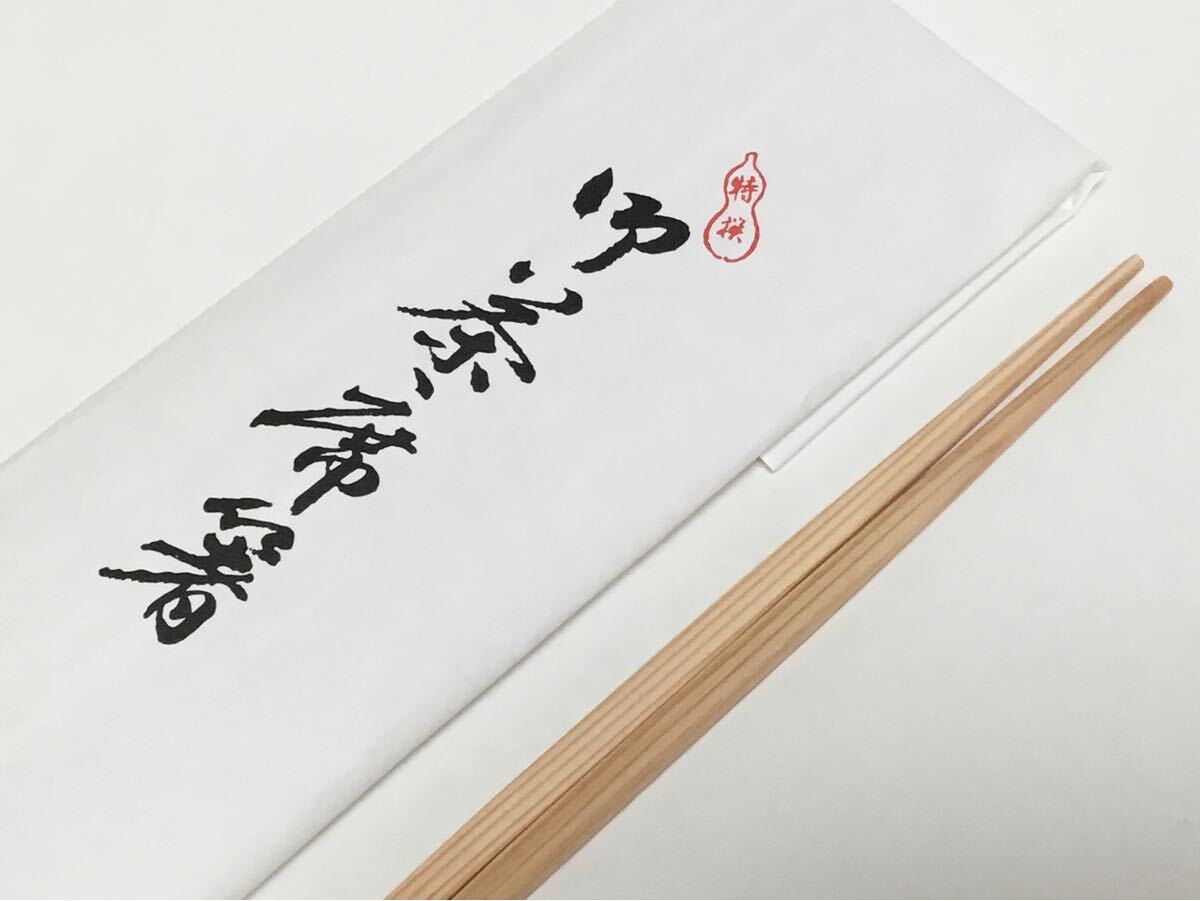 特撰
御茶席箸